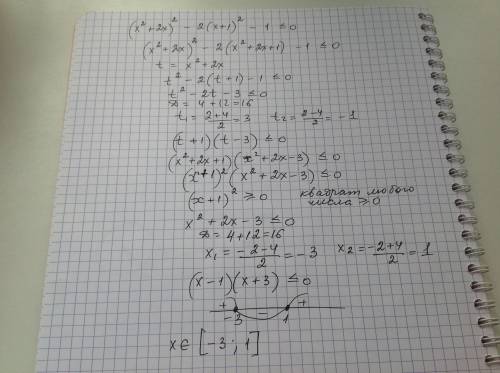 (x² + 2x)² - 2(x+1)² - 1 ≤ 0
(x² + 2x)² - 2(x² + 2x + 1) - 1 ≤ 0
t = x² + 2x
t² - 2(t+1) - 1 ≤ 0
t² - 2t - 3 ≤ 0
D = 4 + 12 = 16
t₁ = (2+4)/2 = 3 t₂ = (2-4)/2 = -1
(t+1)(t-3) ≤ 0
(x² + 2x + 1)(x² + 2x - 3) ≤ 0
(x+1)²(x² + 2x - 3) ≤ 0
(x+1)² ≥ 0 квадрат любого
числа ≥ 0
x² + 2x - 3 ≤ 0
D = 4 + 12 = 16
x₁ = (-2-4)/2 = -3 x₂ = (-2+4)/2 = 1
(x-1)(x+3) ≤ 0
+ - +
-3 1
x ∈ [-3; 1]